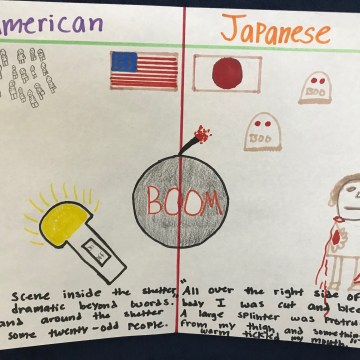 American
Japanese
BOO
BOO
BOOM
Scene inside the shelter,
dramatic beyond words.
and around the shelter
some twenty-odd people.
"All over the right side of
body I was cut and blee
A large splinter was protru
from my thigh, and somethin
warm tickled my mouth."